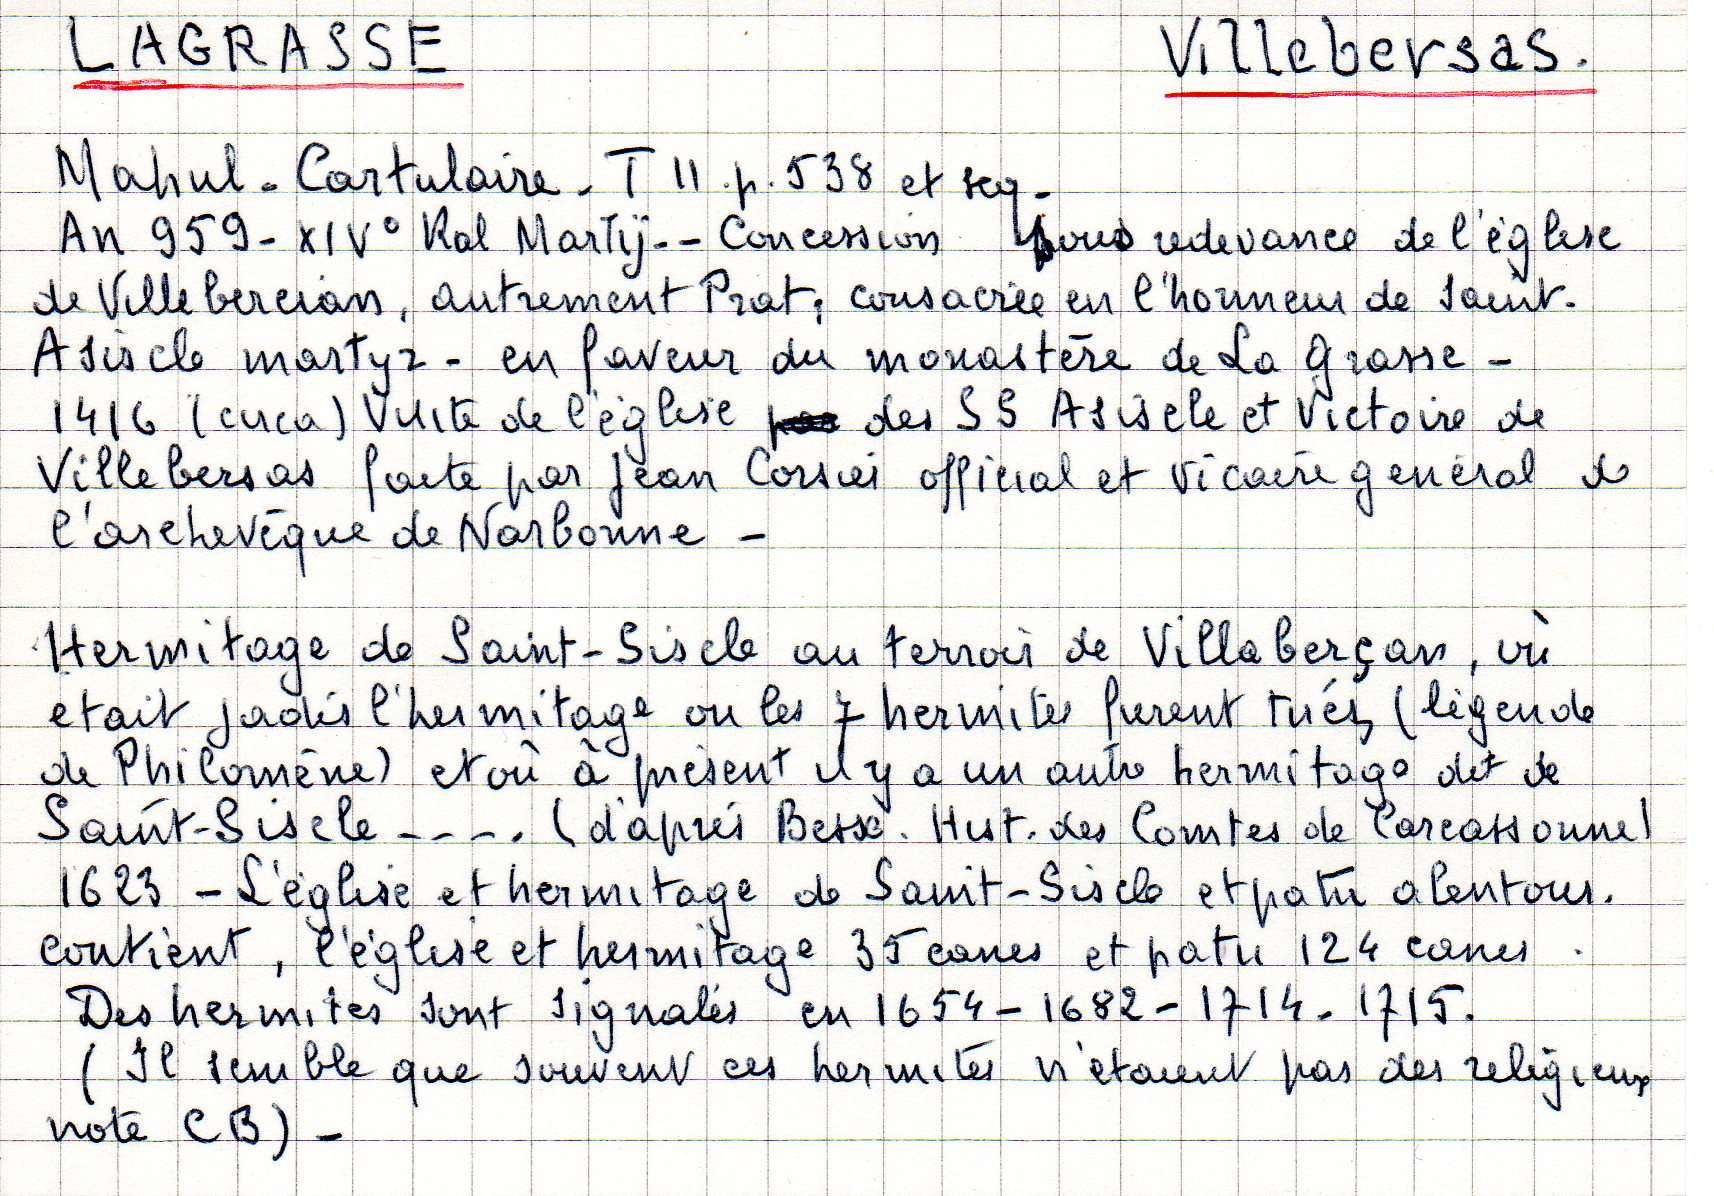 LAGRASSE Villebersas.
Mahul - Cartulaire - T II . p. 538 et seq -
An 959 - XIV° Kal Martij -- Concession sous redevance de l'église
de Villebercian, autrement Prat, consacrée en l'honneur de Saint.
Asiscle martyr - en faveur du monastère de La Grasse -
1416 (circa) Visite de l'église des SS Asiscle et Victoire de
Villebersas faite par Jean Corsier official et vicaire général de
l'archevêque de Narbonne -
Hermitage de Saint-Siscle au terroir de Villaberçan, où
était jadis l'hermitage ou les 7 hermites furent tués, (légende
de Philomène) et où à présent il y a un autre hermitage dit de
Saint-Siscle ----. (d'après Besse. Hist. des Comtes de Carcassonne)
1623 - L'église et hermitage de Saint-Siscle et patu alentour.
contient, l'église et hermitage 35 canes et patu 124 canes .
Des hermites sont signalés en 1654 - 1682 - 1714 - 1715.
( Il semble que souvent ces hermites n'étaient pas des religieux
note CB) -